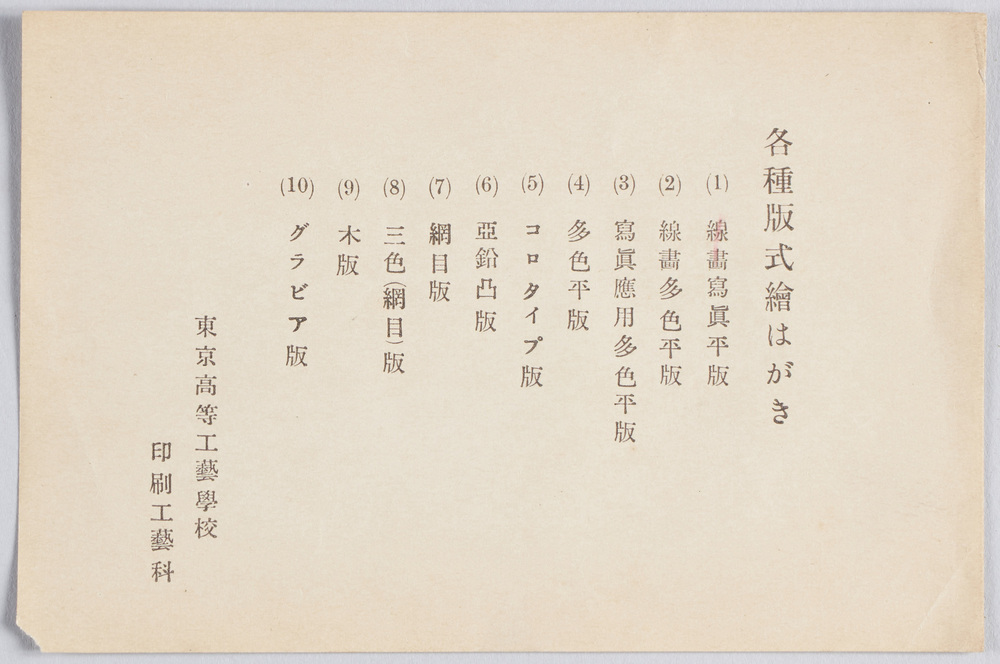 各種版式繪はがき
(1) 線畫寫眞平版
(2) 線畫多色平版
(3) 寫眞應用多色平版
(4) 多色平版
(5) コロタイプ版
(6) 亞鉛凸版
(7) 網目版
(8) 三色(網目)版
(9) 木版
(10) グラビア版
東京高等工藝學校
印刷工藝科